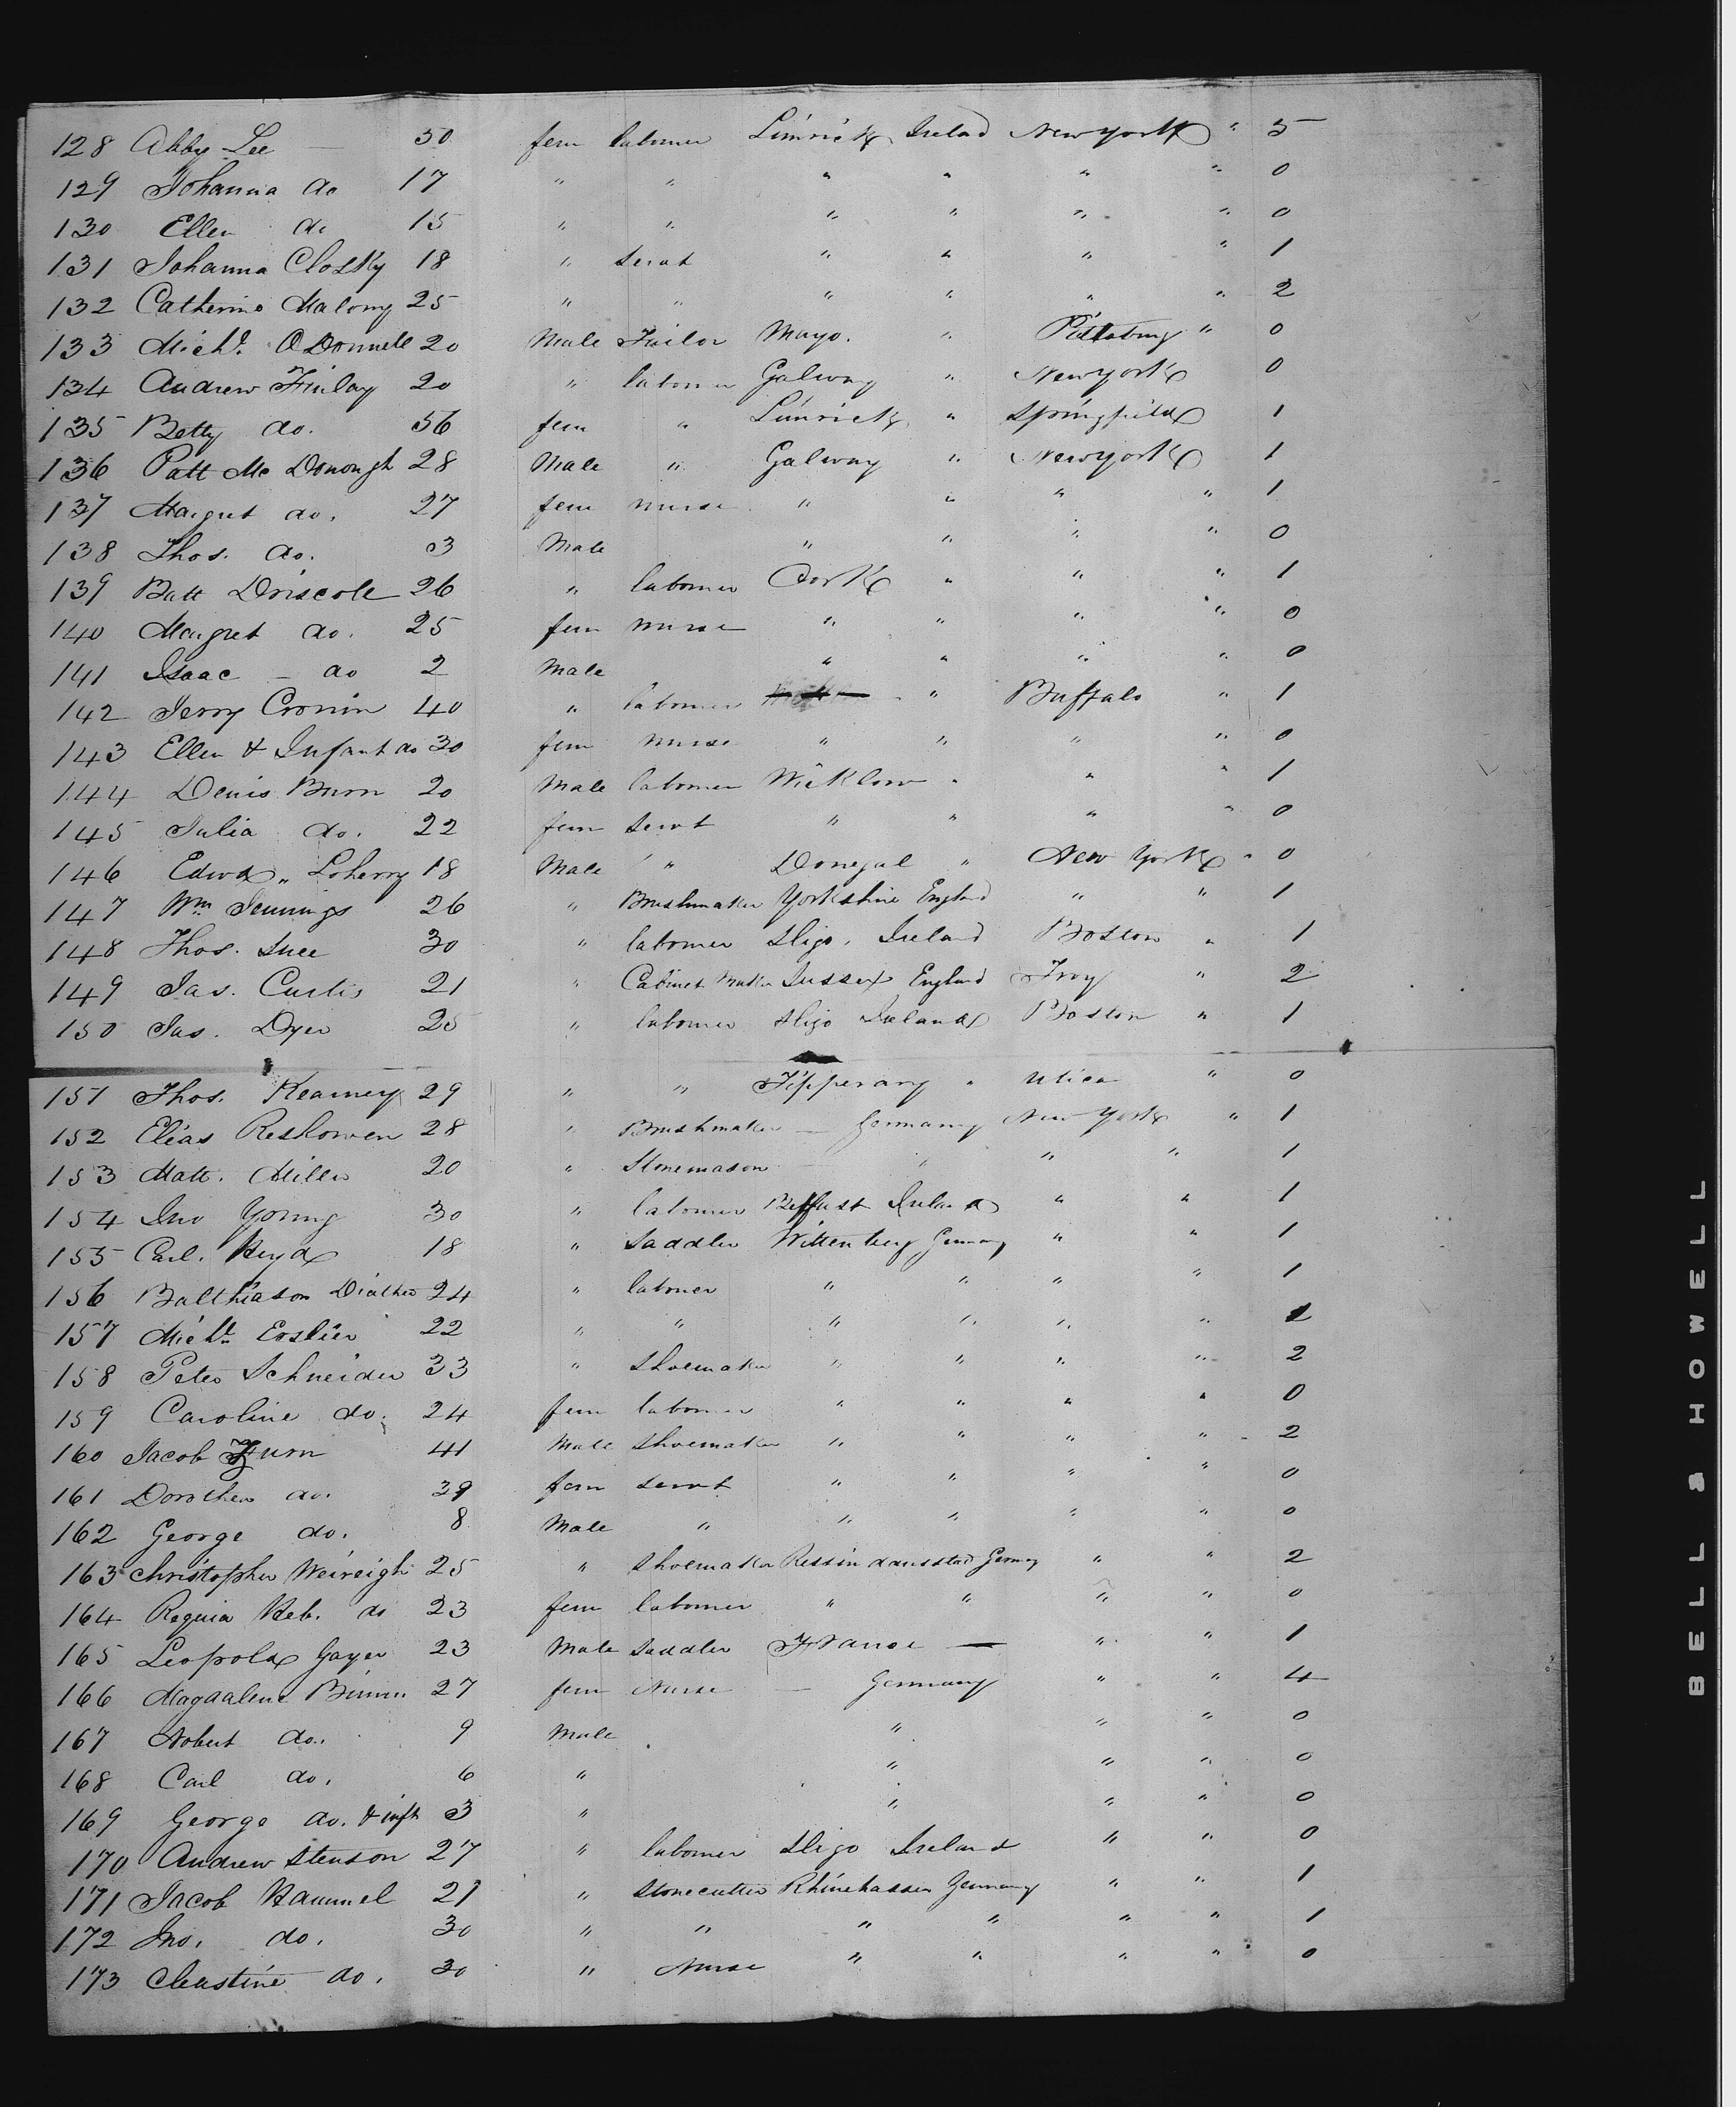 128 Abby Lee — 50 fem labourer Limrick Irelad New York " 5
129 Johanna do 17 " " " " " " 0
130 Ellen do 15 " " " " " " 0
131 Johanna Closky 18 " servt " " " " 1
132 Catherine Malony 25 " " " " " " 2
133 Michl. O Donnell 20 Male Tailor Mayo. " Pittsburg " 0
134 Andrew Finlay 20 " labourer Galway " New york 0
135 Betty do. 56 fem " Limrick " Springfield 1
136 Patt Mc Donough 28 Male " Galway " New york 1
137 Margret do. 27 fem nurse " " " " 1
138 Thos. do. 03 Male " " " " 0
139 Batt Driscole 26 " labourer Cork " " " 1
140 Margret do. 25 fem nurse " " " " 0
141 Isaac — do 2 Male " " " " 0
142 Jerry Cronin 40 " labourer " Buffalo " 1
143 Ellen & Infant do 30 fem nurse " " " " 0
144 Denis Burn 20 Male labourer Wicklow " " " 1
145 Julia do. 22 fem servt " " " " 0
146 Edwd " Loherry 18 Male " Donegal " New York " 0
147 Wm Jennings 26 " Brushmaker Yorkshire England " " 1
148 Thos. Snee 30 " labourer Sligo. Ireland Boston " 1
149 Jas. Curtis 21 " Cabinet Maker Sussex England Troy " 2
150 Jas. Dyer 25 " labourer Sligo Ireland Boston " 1
151 Thos. Kearney 29 " " Tipperary " Utica " 0
152 Elias 28 " Brushmaker — Germany New York " 1
153 Matt. Miller 20 " Stonemason " " " 1
154 Jno Young 30 " labourer Belfast Ireland " " 1
155 Carl. Heyd 18 " Saddler Wittenberg Germany " " 1
156 24 " labourer " " " " 1
157 Michl. 22 " " " " " " 1
158 Peter Schneider 33 " Shoemaker " " " " 2
159 Caroline do. 24 fem labourer " " " " 0
160 Jacob Zurn 41 Male Shoemaker " " " " 2
161 Dorothea do. 39 fem servt " " " " 0
162 George do. 8 Male " " " " " 0
163 Christopher Weireigh 25 " Shoemaker Germany " " 2
164 do 23 fem labourer " " " " 0
165 Leopold Gayer 23 Male Saddler France — " " 1
166 Magdalene 27 fem Nurse — Germany " " 4
167 do. 9 Male " " " 0
168 Carl do. 6 " " " " 0
169 George do. & inft 3 " " " " 0
170 Andrew Stenson 27 " labourer Sligo Ireland " " 0
171 Jacob Hammel 29 " Stonecutter Rhinehassen Germany " " 1
172 Jno. do. 30 " " " " " " 1
173 Cleastine do. 30 " Nurse " " " " 0
BELL & HOWELL